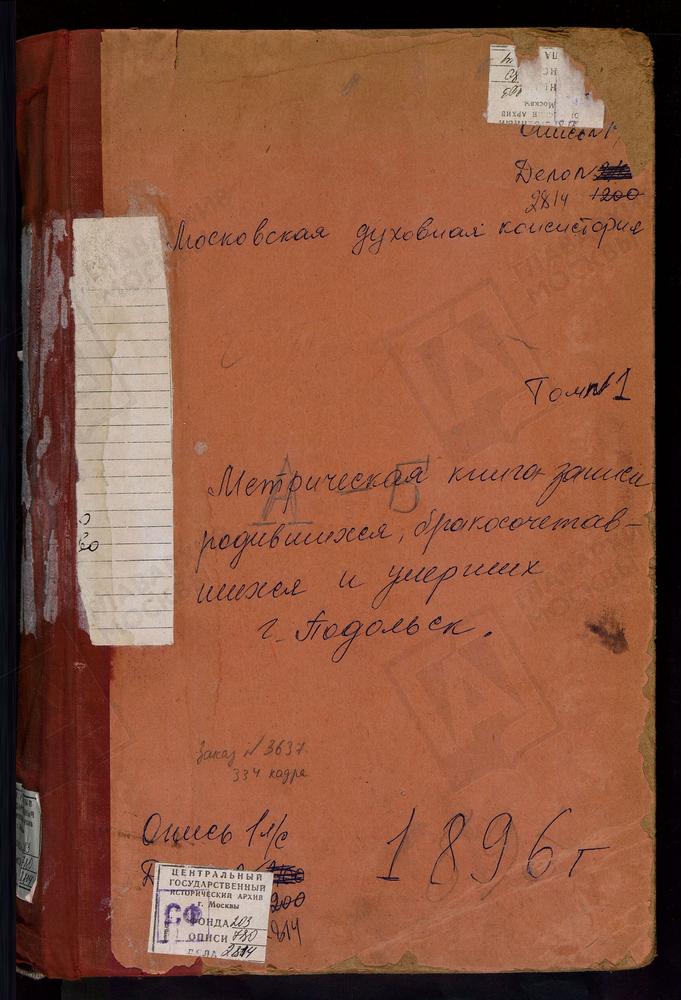 Опись №1
Дело №
2814 1200
Московская духовная консистория
Том №1
А – Б
Метрическая книга записи
родившихся, бракосочетав-
шихся и умерших
г. Подольск.
Заказ №3637
334 кадра
Опись 1 л/с
1896 г
200
2814
ЦЕНТРАЛЬНЫЙ
ГОСУДАРСТВЕННЫЙ
ИСТОРИЧЕСКИЙ АРХИВ
г. Москвы
СФ
ФОНДА 203
ОПИСИ 780
ДЕЛА 2814